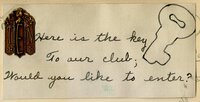 Here is the key
To our club;
Would you like to enter?